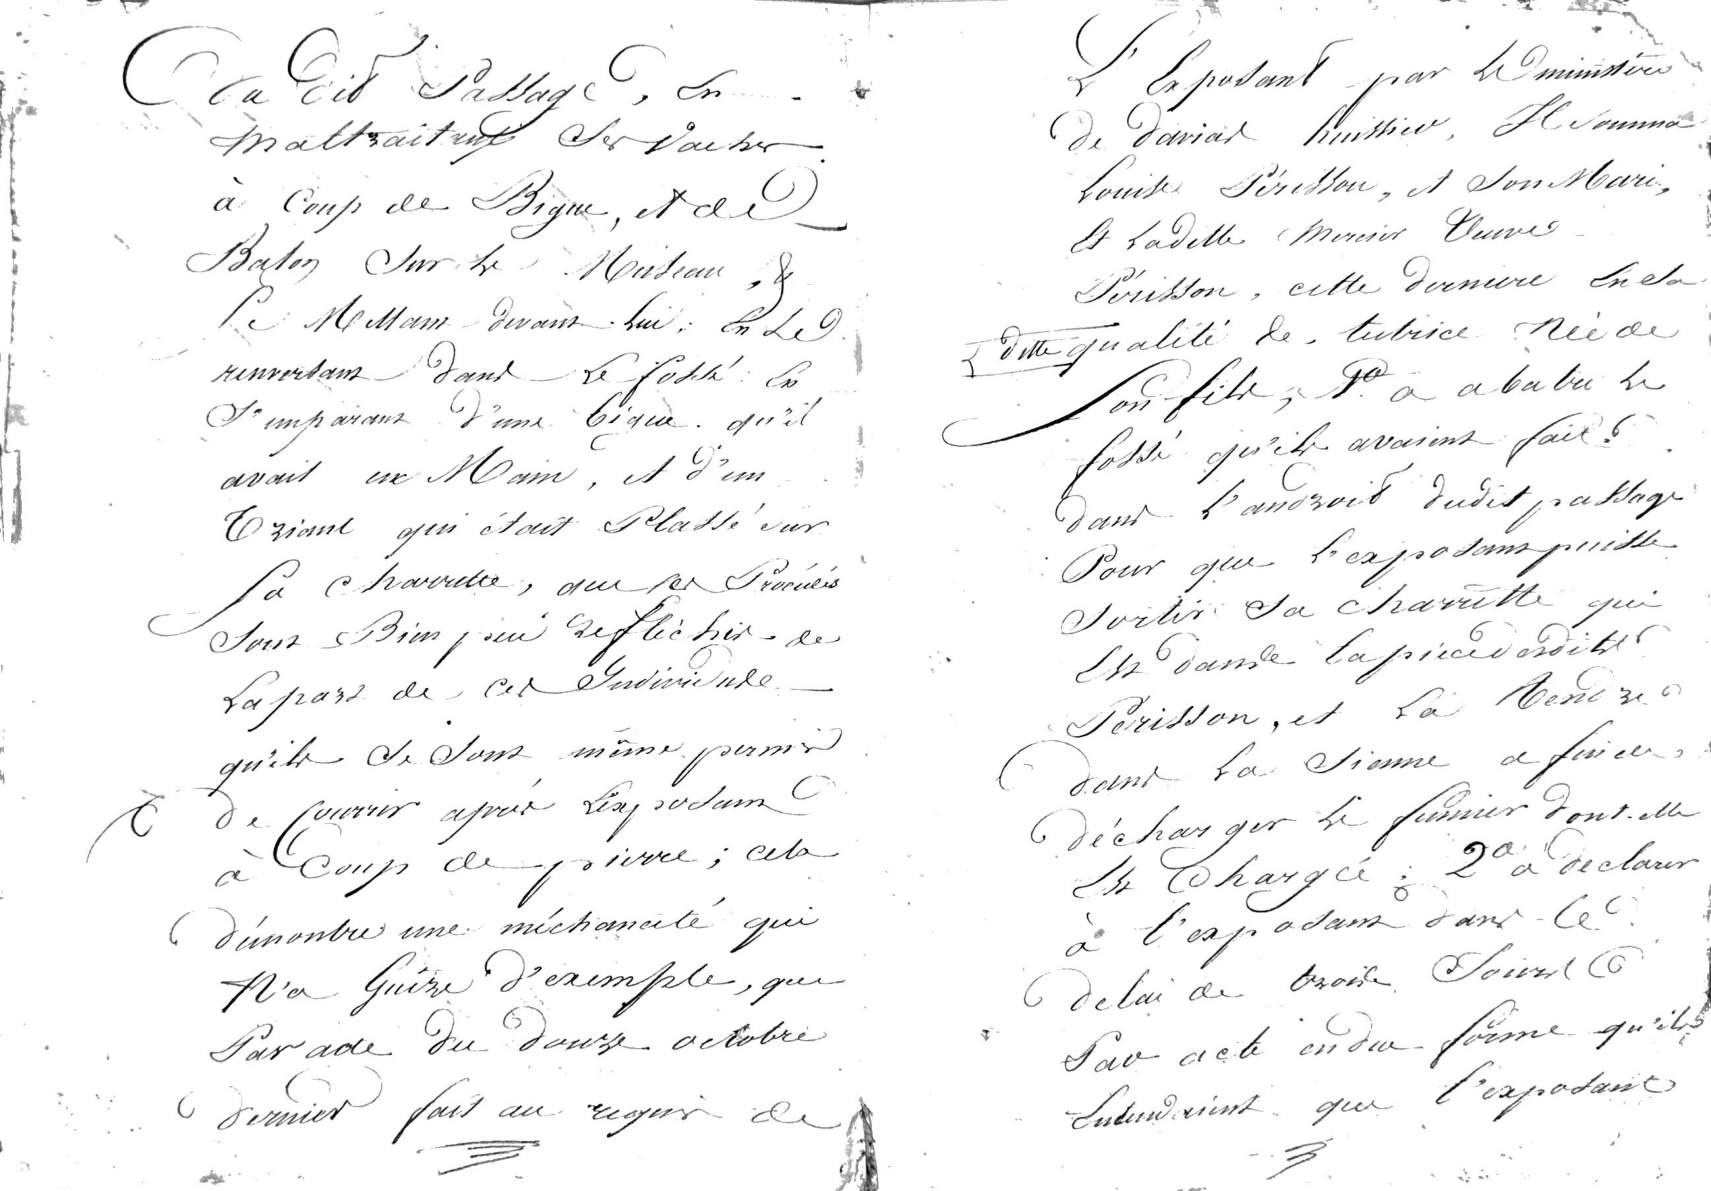 Ca dit Passage, En
Maltraitant Ses Vaches
à Coup de Bigue, et de
Baton Sur le Museau, &
Se Mettant devant lui; En Le
renversant dans Le fossé: En
S'emparant d'une bigue qu'il
avait en Main, et d'un
Triant qui était Plassé sur
Sa Charrette, que ses Procédés
Sont Bien peu reflechis de
La part de ces Individus
qu'ils Se Sont même permis
de Courrir après L'exposant
à Coup de pierre; cela
démontre une méchanceté qui
N'a Guère d'exemple, que
Par acte du douze octobre
dernier fait au requis de
L'Exposant par Le ministère
de daviad huissier, Il Somma
Louise Périsson, et Son Mari,
Et Ladette Mercier Veuve
Périsson, cette derniere En Sa
Ditte qualité de tutrice Née de
Son fils, 1º a abatre Le
fossé qu'ils avaient fait
dans L'androit dudit passage
Pour que L'exposant puisse
Sortir Sa charrette qui
Est dans la pièce desdits
Périsson, et La Rendre
dans La Sienne a fin de
décharger Le fumier dont elle
Est Chargée; 2º à declarer
à l'exposant dans Le
delai de trois Jours
Par acte en due forme qu'ils
Entendraient que L'exposant